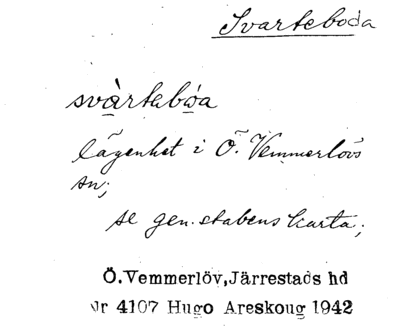 Svarteboda
svàrtebóa
lägenhet i Ö. Vemmerlövs
sn;
se gen.stabens karta;
Ö.Vemmerlöv, Järrestads hd
nr 4107 Hugo Areskoug 1942